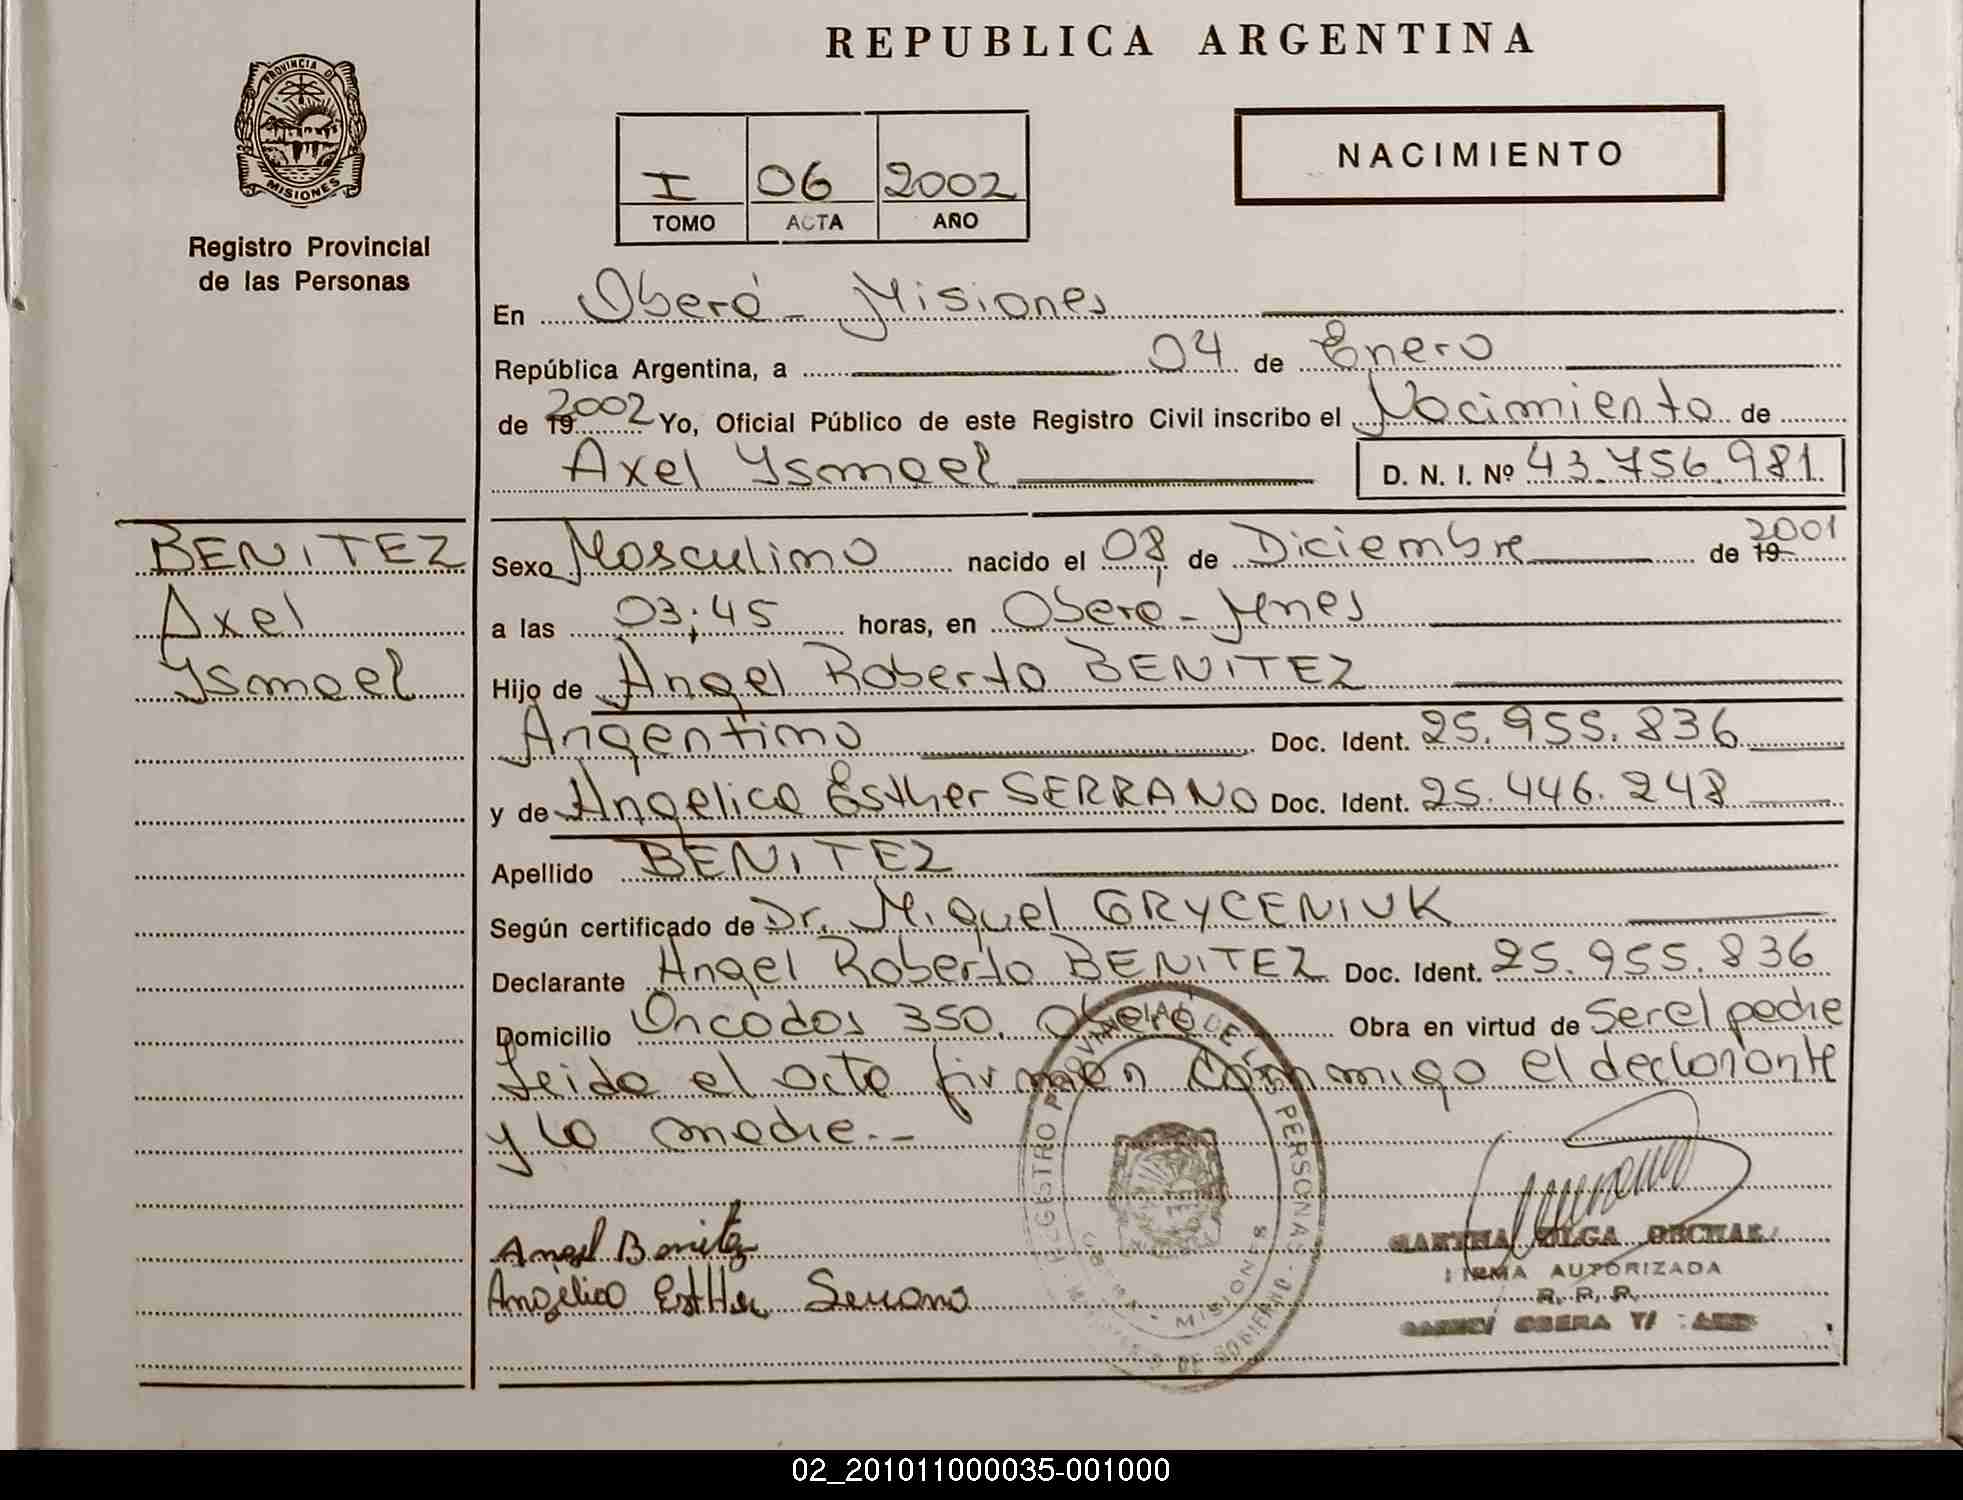 REPUBLICA ARGENTINA
PROVINCIA DE
MISIONES
Registro Provincial
de las Personas
I 06 2002
TOMO ACTA AÑO
NACIMIENTO
En Oberá - Misiones
República Argentina, a 04 de Enero
de 19 2002 Yo, Oficial Público de este Registro Civil inscribo el Nacimiento de
Axel Ysmael D. N. I. Nº 43.756.981
BENITEZ
Axel
Ysmael
Sexo Masculino nacido el 08 de Diciembre de 19 2001
a las 03:45 horas, en Oberá - Mnes
Hijo de Angel Roberto BENITEZ
Argentino Doc. Ident. 25.955.836
y de Angelica Esther SERRANO Doc. Ident. 25.446.248
Apellido BENITEZ
Según certificado de Dr. Miguel GRYCENIUK
Declarante Angel Roberto BENITEZ Doc. Ident. 25.955.836
Domicilio Oncados 350. Oberá Obra en virtud de Ser el padre
Leida el acta firman conmigo el declarante
y la madre.-
REGISTRO PROVINCIAL DE LAS PERSONAS
MISIONES
DE GOBIERNO
Angel Benitez
Angélica Esther Serrano
MARTHA OLGA
FIRMA AUTORIZADA
R. P. P.
OBERA
02_201011000035-001000